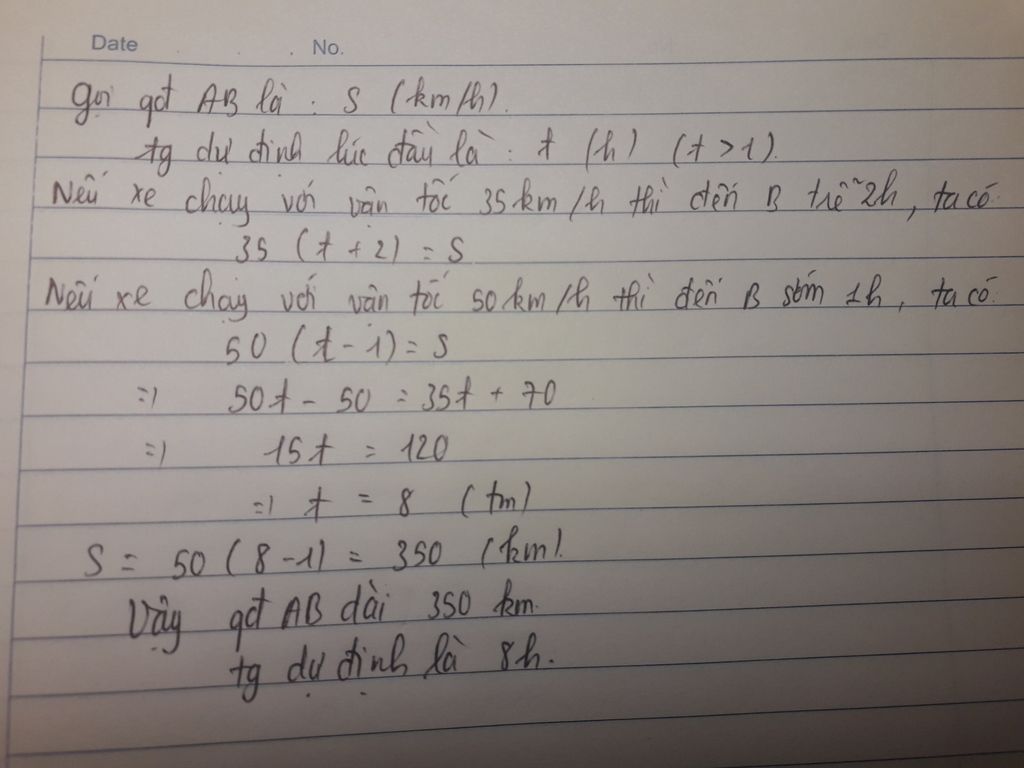 Date . . . No.
Gọi qđ AB là : S (km/h).
tg dự định lúc đầu là : t (h) (t > 1)
Nếu xe chạy với vận tốc 35 km/h thì đến B trễ 2h, ta có:
35 (t + 2) = S
Nếu xe chạy với vận tốc 50 km/h thì đến B sớm 1h, ta có:
50 (t - 1) = S
=> 50t - 50 = 35t + 70
=> 15t = 120
=> t = 8 (tm)
S = 50 (8 - 1) = 350 (km).
Vậy qđ AB dài 350 km.
tg dự định là 8h.